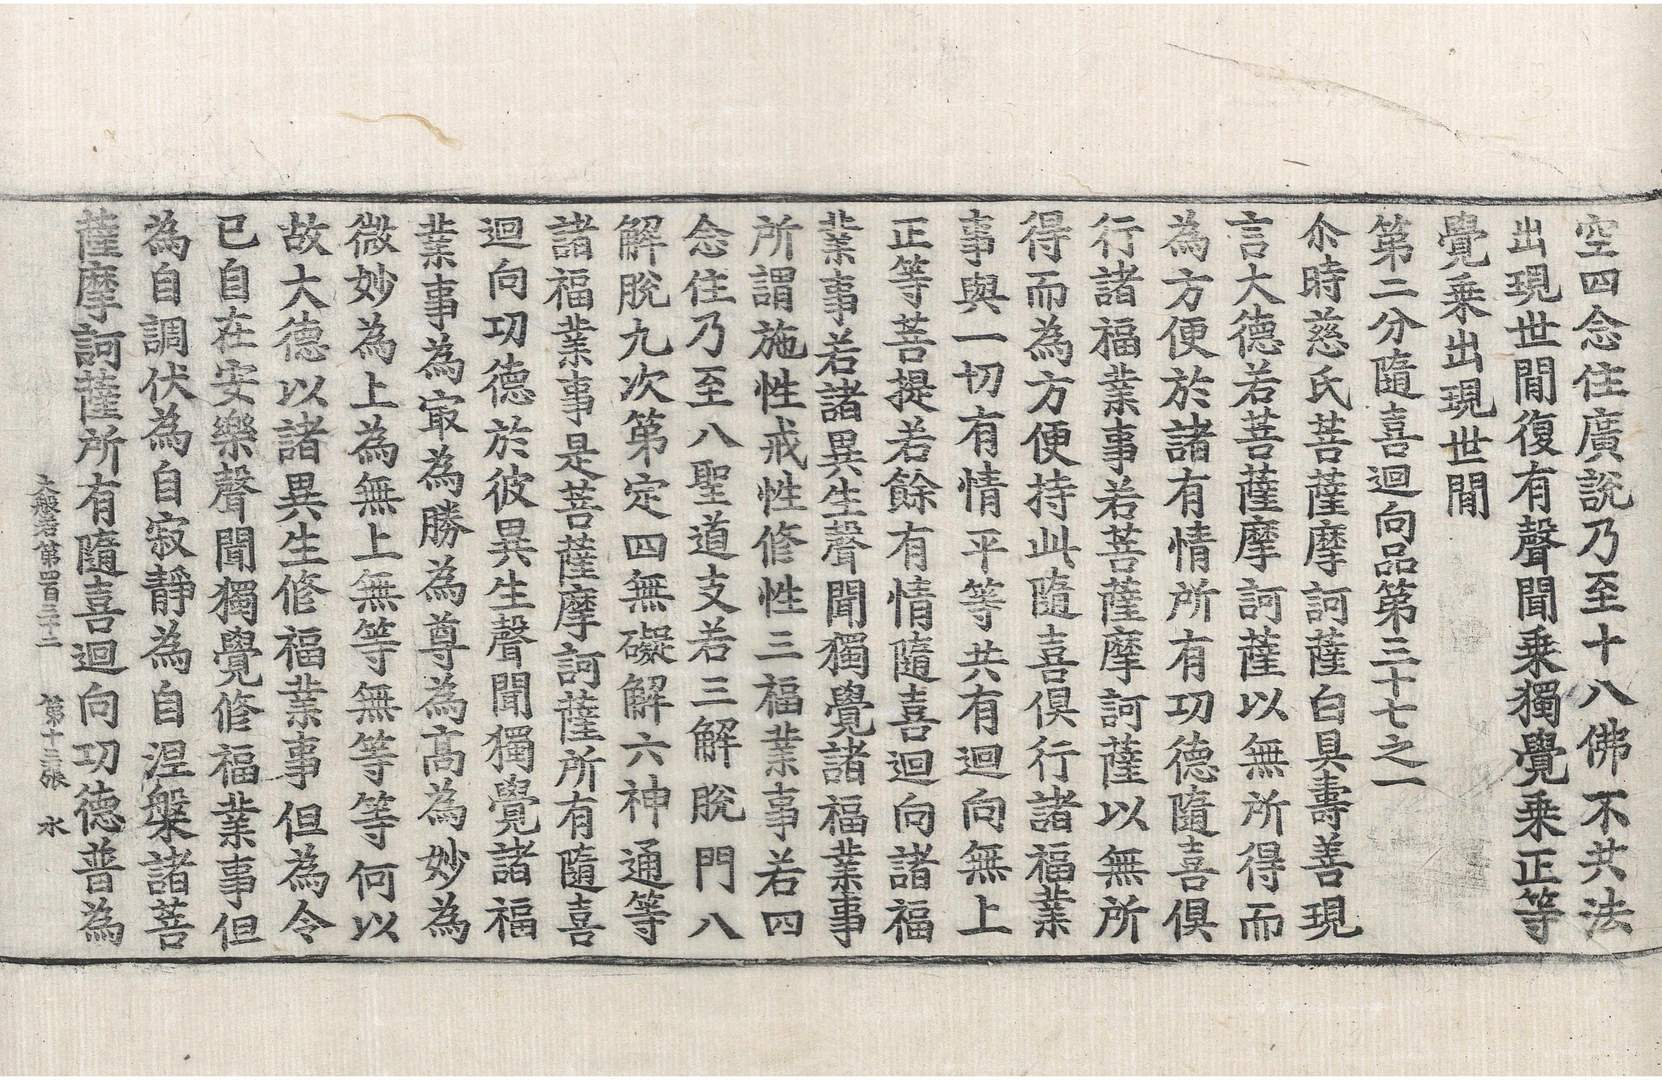 空四念住廣說乃至十八佛不共法
出現世閒復有聲聞乗獨覺乗正等
覺乗出現世閒
第二分隨喜迴向品第三十七之一
尒時慈氏菩薩摩訶薩白具壽善現
言大德若菩薩摩訶薩以無所得而
為方便於諸有情所有功德隨喜俱
行諸福業事若菩薩摩訶薩以無所
得而為方便持此隨喜俱行諸福業
事與一切有情平等共有迴向無上
正等菩提若餘有情隨喜迴向諸福
業事若諸異生聲聞獨覺諸福業事
所謂施性戒性修性三福業事若四
念住乃至八聖道支若三解脫門八
解脫九次第定四無礙解六神通等
諸福業事是菩薩摩訶薩所有隨喜
迴向功德於彼異生聲聞獨覺諸福
業事為㝡為勝為尊為高為妙為
微妙為上為無上無等無等等何以
故大德以諸異生修福業事但為令
已自在安樂聲聞獨覺修福業事但
為自調伏為自寂靜為自涅槃諸菩
薩摩訶薩所有隨喜迴向功德普為
大般若第四百三十二 第十三張 水